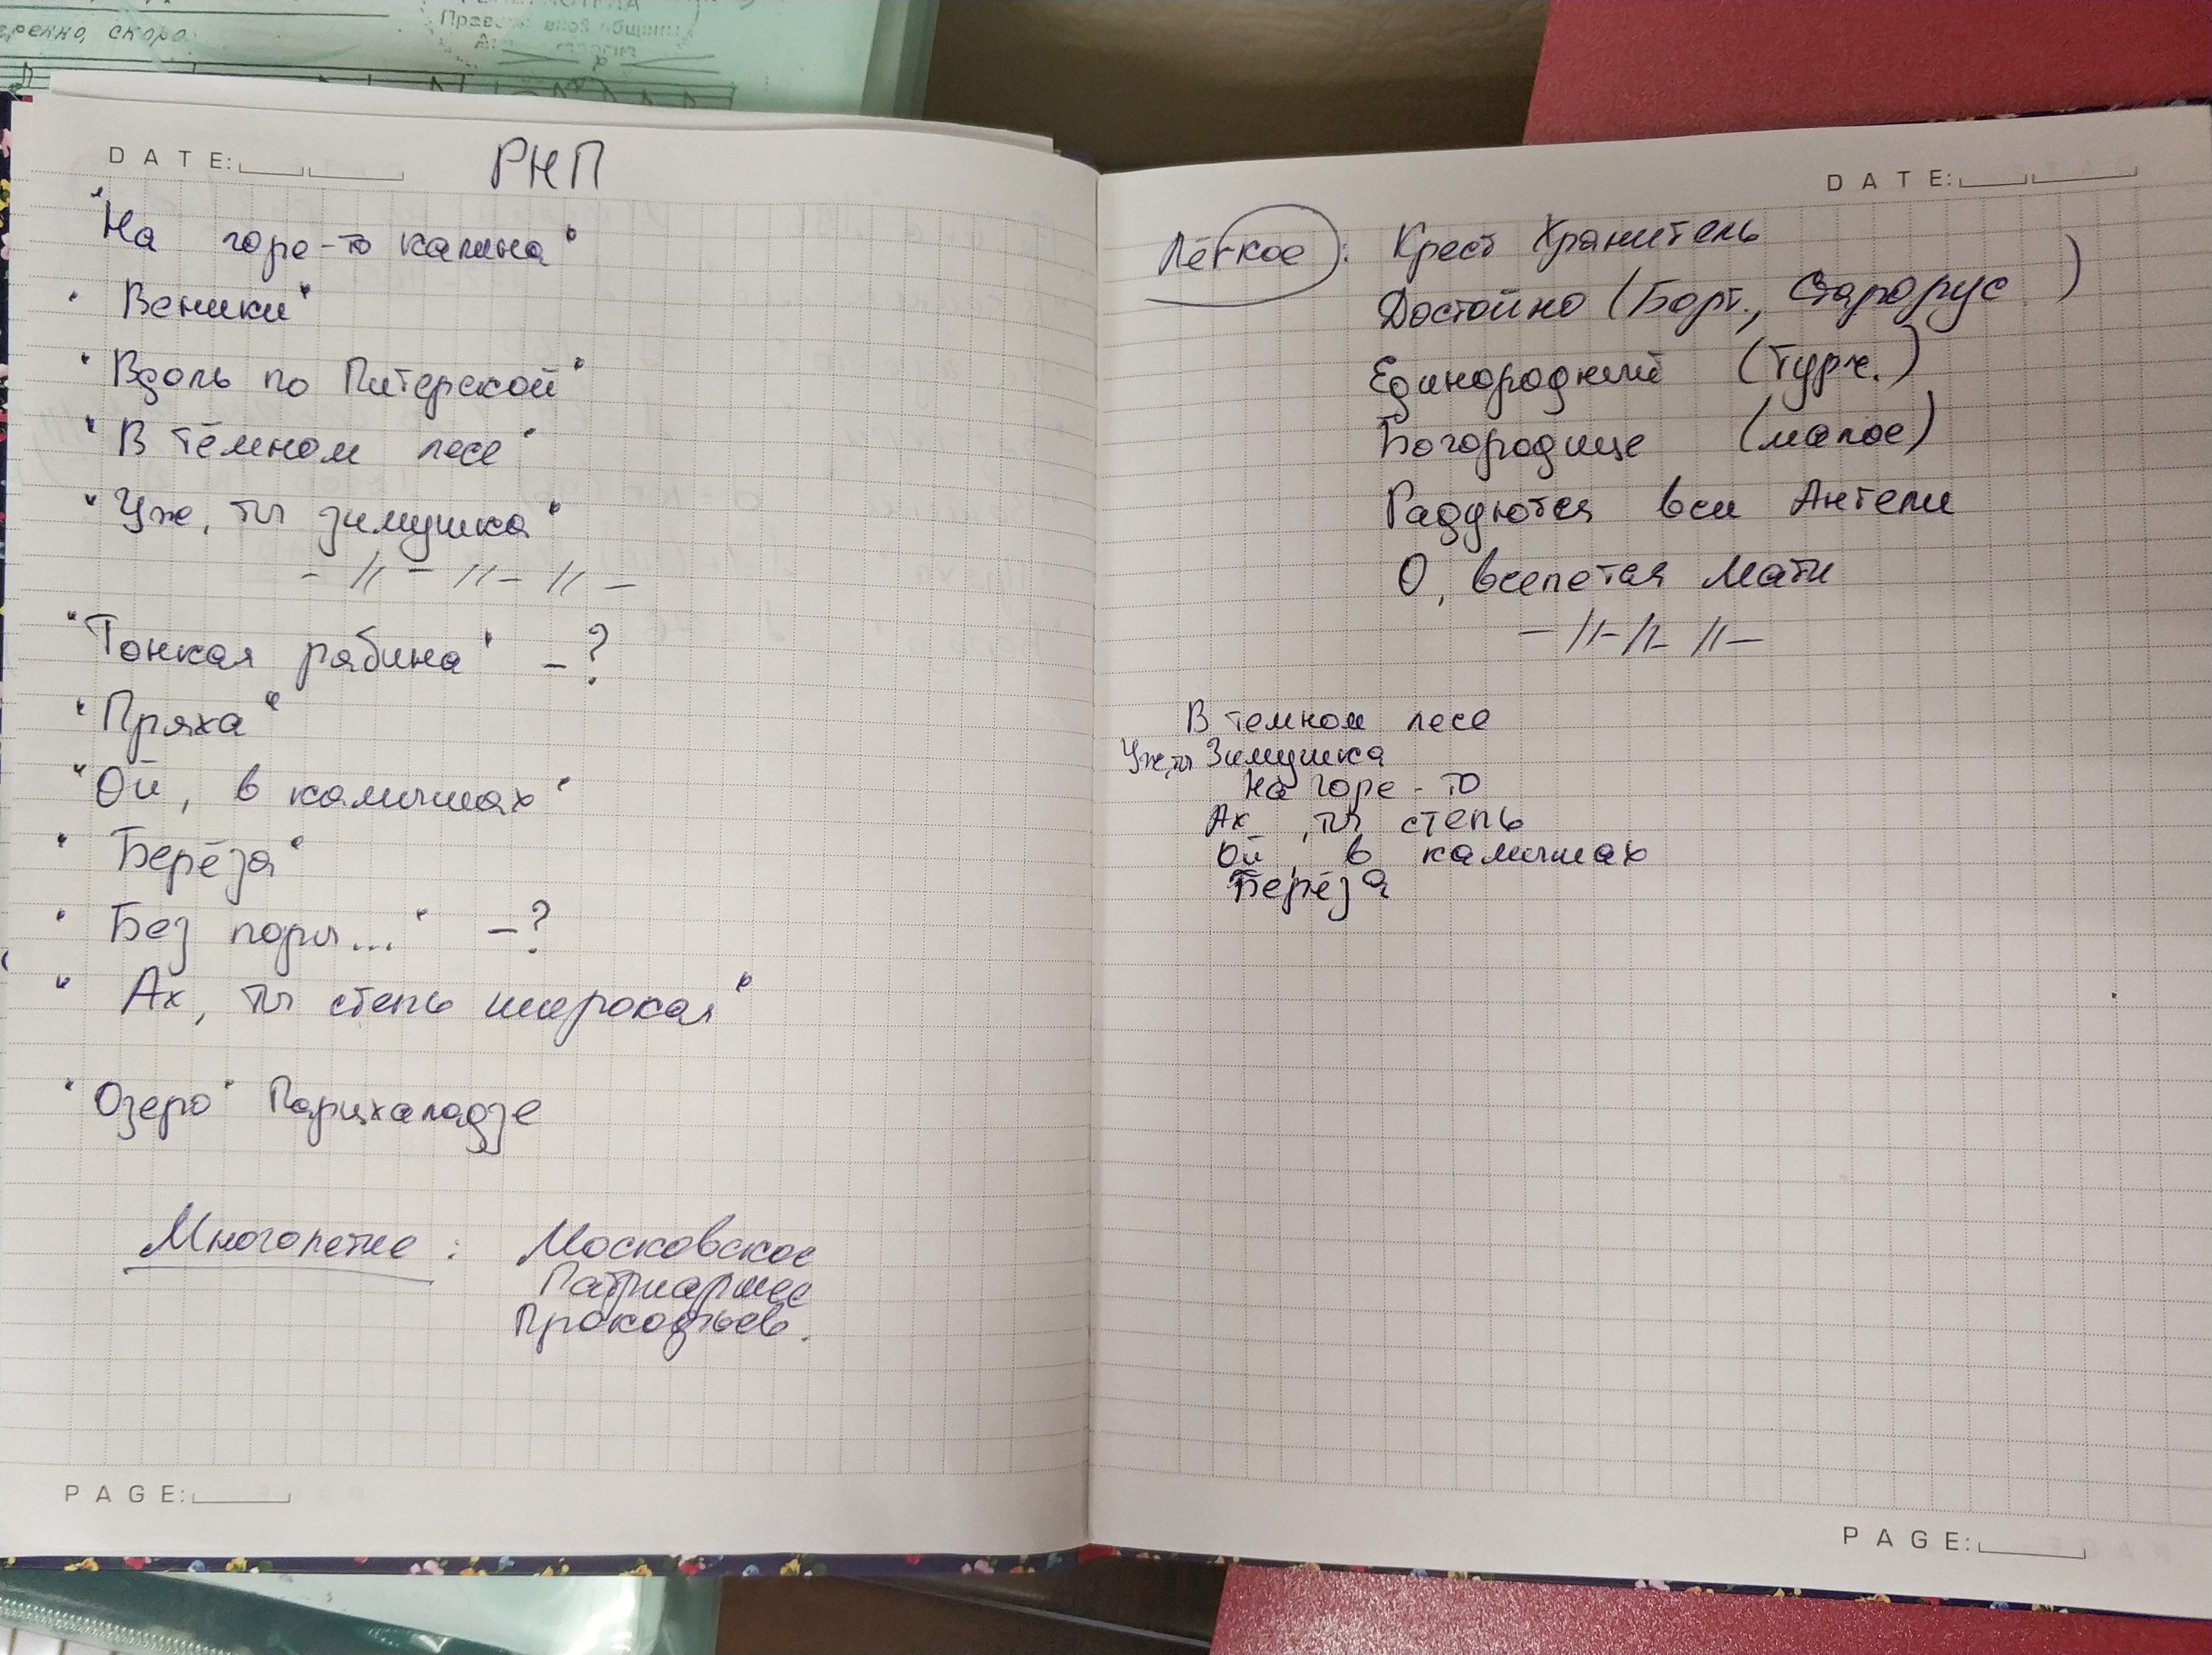 ренно, скоро
DATE:
РНП
"На горе-то калина"
"Веники"
"Вдоль по Питерской"
"В тёмном лесе"
"Уж, ты зимушка"
- // - // - // -
"Тонкая рябина" - ?
"Пряха"
"Ой, в камышах"
"Берёза"
"Без поры..." - ?
"Ах, ты степь широкая"
"Озеро" Парцхаладзе
Многолетие : Московское
Патриаршее
Прокофьев.
PAGE:
DATE:
Лёгкое : Крест Хранитель
Достойно (Борт., Старорус )
Единородный (Турч.)
Богородице (малое)
Радуются вси Ангели
О, всепетая Мати
- // - // - // -
В темном лесе
Уж, ты Зимушка
На горе - то
Ах , ты степь
Ой , в камышах
Берёза
PAGE: